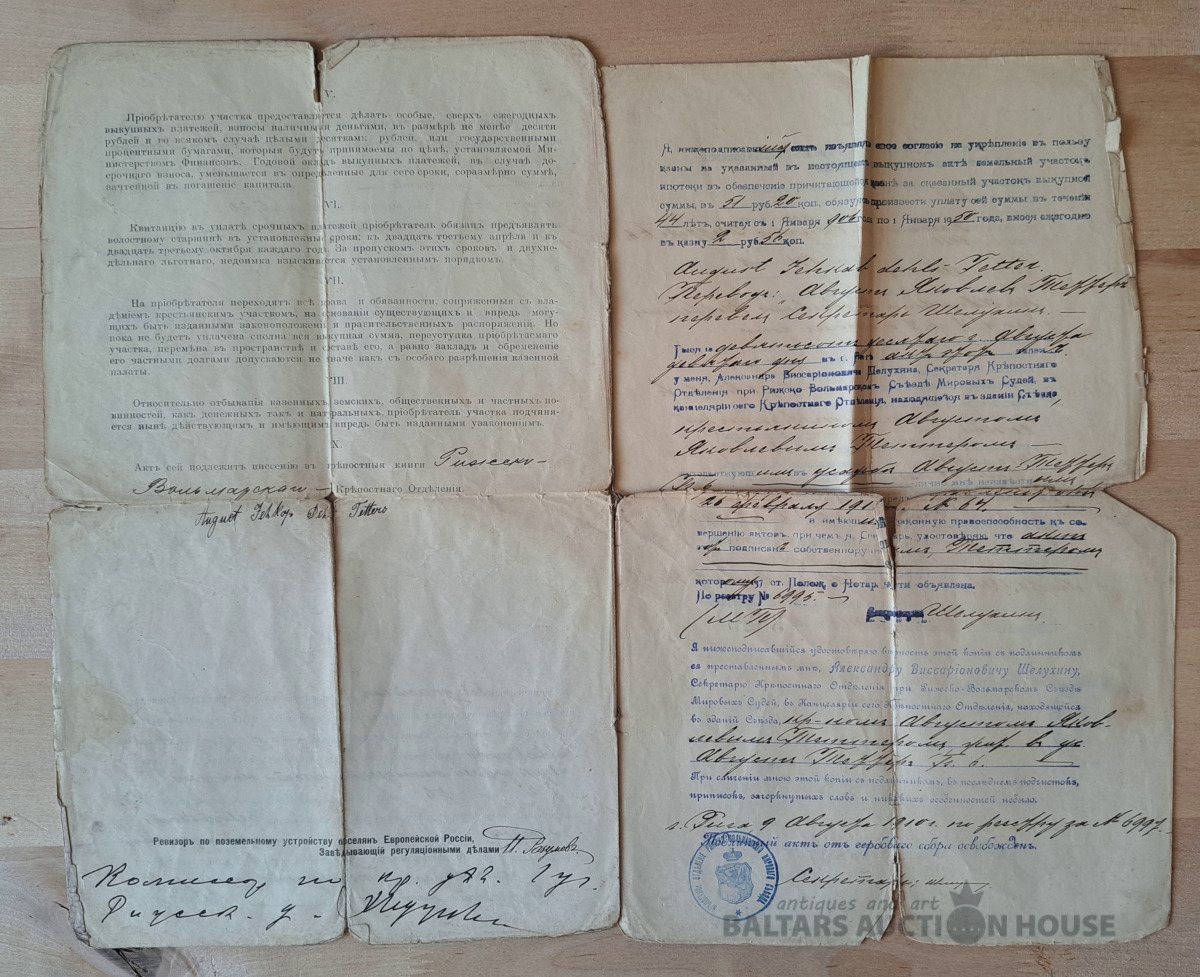 V.
Пріобрѣтателю участка предоставляется дѣлать особые, сверхъ ежегодныхъ
выкупныхъ платежей, взносы наличными деньгами, въ размѣрѣ не менѣе десяти
рублей и во всякомъ случаѣ цѣлыми десятками рублей, или государственными
процентными бумагами, которыя будутъ принимаемы по цѣнѣ, установляемой Ми-
нистерствомъ Финансовъ. Годовой окладъ выкупныхъ платежей, въ случаѣ до-
срочнаго взноса, уменьшается въ опредѣленные для сего сроки, соразмѣрно суммѣ,
зачтенной въ погашеніе капитала.
VI.
Квитанцію въ уплатѣ срочныхъ платежей пріобрѣтатель обязанъ предъявлять
волостному старшинѣ въ установленные сроки: къ двадцать третьему апрѣля и къ
двадцать третьему октября каждаго года. За пропускомъ этихъ сроковъ и двухне-
дѣльнаго льготнаго, недоимка взыскивается установленнымъ порядкомъ.
VII.
На пріобрѣтателя переходятъ всѣ права и обязанности, сопряженныя съ вла-
дѣніемъ крестьянскимъ участкомъ, на основаніи существующихъ и впредь могу-
щихъ быть изданными законоположеній и правительственныхъ распоряженій. Но
пока не будетъ уплачена сполна вся выкупная сумма, переуступка пріобрѣтаемаго
участка, перемѣна въ пространствѣ и составѣ его, а равно закладъ и обремененіе
его частными долгами допускаются не иначе какъ съ особаго разрѣшенія казенной
палаты.
VIII.
Относительно отбыванія казенныхъ, земскихъ, общественныхъ и частныхъ по-
винностей, какъ денежныхъ такъ и натуральныхъ, пріобрѣтатель участка подчиня-
ется нынѣ дѣйствующимъ и имѣющимъ впредь быть изданными узаконеніямъ.
X.
Актъ сей подлежитъ внесенію въ крѣпостныя книги Рижско-
Вольмарскаго Крѣпостного Отдѣленія.
August Jehkop Tetters
Ревизоръ по поземельному устройству поселянъ Европейской Россіи,
Завѣдывающій регуляціонными дѣлами
Я, нижеподписавшійся симъ изъявляю свое согласіе на укрѣпленіе въ пользу
казны на указанный въ настоящемъ выкупномъ актѣ земельный участокъ
ипотеки въ обезпеченіе причитающейся казнѣ за сказанный участокъ выкупной
суммы, въ 51 руб. 20 коп., обязуясь произвести уплату сей суммы въ теченіи
44 лѣтъ, считая съ 1 Января 906 год по 1 Января 1950 года, внося ежегодно
въ казну 2 руб. 56 коп.
August Jehkab dehls Tetter.
Переводъ: Августъ Яковлевъ Теттеръ
перевелъ Секретарь Шелухинъ.
Тысяча девятисотъ десятаго г. Августа
девятаго дня въ г. Ригѣ актъ
у меня, Александра Виссаріоновича Шелухина, Секретаря Крѣпостного
Отдѣленія при Рижско-Вольмарскомъ Съѣздѣ Мировыхъ Судей, въ
канцеляріи сего Крѣпостного Отдѣленія, находящейся въ зданіи Съѣзда
крестьяниномъ Августомъ
Яковлевымъ Теттеромъ
въ усадьбѣ Августъ Теттеръ
26 февраля 191 № 64.
и имѣющимъ законную правоспособность къ со-
вершенію актовъ, при чемъ я, Секретарь, удостовѣряю, что актъ
подписанъ собственноручно Теттеромъ
которому 97 ст. Полож. о Нотар. части объявлена.
По реестру № 6995.
(М. П.) Шелухинъ
Я нижеподписавшійся удостовѣряю вѣрность этой копіи съ подлинникомъ
ея представленнымъ мнѣ, Александру Виссаріоновичу Шелухину,
Секретарю Крѣпостного Отдѣленія при Рижско-Вольмарскомъ Съѣздѣ
Мировыхъ Судей, въ Канцеляріи сего Крѣпостного Отдѣленія, находящейся
въ зданіи Съѣзда, кр-номъ Августомъ Яков-
левымъ Теттеромъ жив. въ ус.
Августъ Теттеръ
При сличеніи мною этой копіи съ подлинникомъ, въ послѣднемъ подчистокъ,
приписокъ, зачеркнутыхъ словъ и никакихъ особенностей не было.
г. Рига 9 Августа 1910 г. по реестру за № 6997.
Настоящій актъ отъ гербоваго сбора освобожденъ.
Секретарь:
antiques and art
BALTARS AUCTION HOUSE